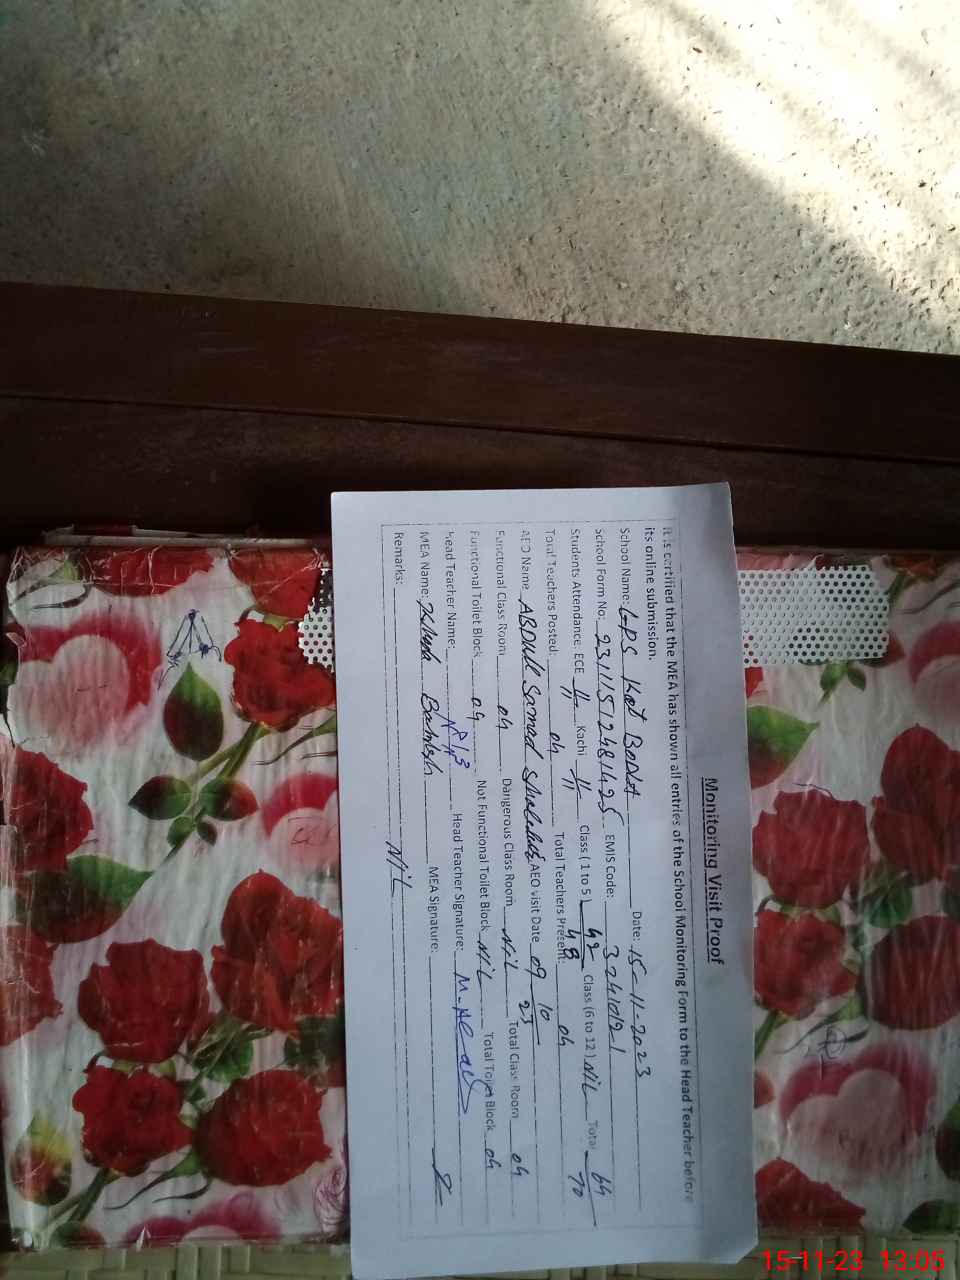 Monitoring Visit Proof
It is certified that the MEA has shown all entries of the School Monitoring Form to the Head Teacher before
its online submission.
School Name: GPS Kot Boda Date: 15-11-2023
School Form No: 23111512481425 EMIS Code: 32410121
Students Attendance: ECE 11/11 Kachi 11/11 Class (1 to 5) 42/48 Class (6 to 12) Nil Total 64/70
Total Teachers Posted: 04 Total Teachers Present: 04
AEO Name ABDUll Samad AEO visit Date 09 10 23
Functional Class Room 04 Dangerous Class Room Nil Total Class Room 04
Functional Toilet Block 04 Not Functional Toilet Block Nil Total Toilet Block 04
Head Teacher Name: Head Teacher Signature:
MEA Name: Bakhsh MEA Signature:
Remarks: Nil
15-11-23 13:05